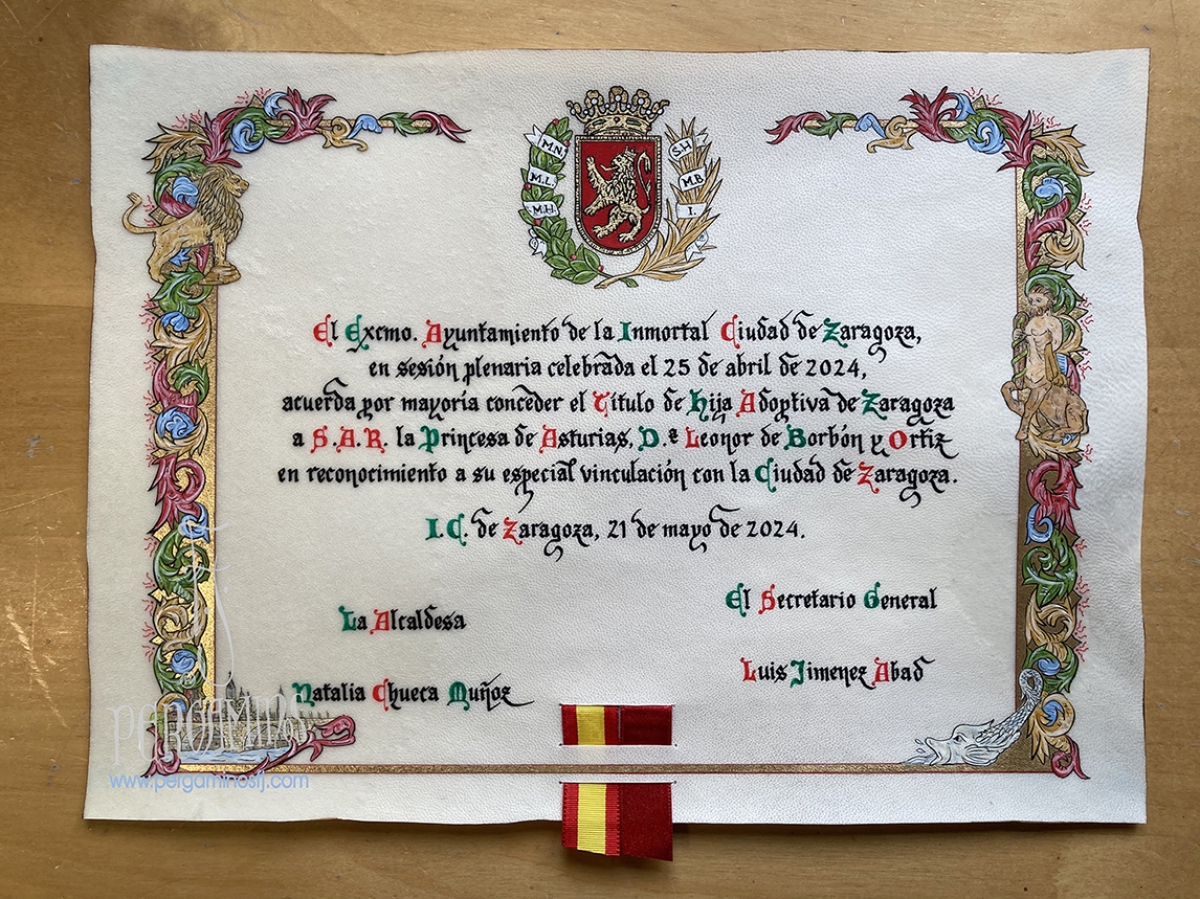 M.N.
M.L.
M.H.
S.H
M.B
I.
El Excmo. Ayuntamiento de la Inmortal Ciudad de Zaragoza,
en sesión plenaria celebrada el 25 de abril de 2024,
acuerda por mayoría conceder el Título de Hija Adoptiva de Zaragoza
a S.A.R. la Princesa de Asturias, D.ª Leonor de Borbón y Ortiz
en reconocimiento a su especial vinculación con la Ciudad de Zaragoza.
I.C. de Zaragoza, 21 de mayo de 2024.
La Alcaldesa
Natalia Chueca Muñoz
El Secretario General
Luis Jimenez Abad
PERGAMINOS
www.pergaminosfj.com